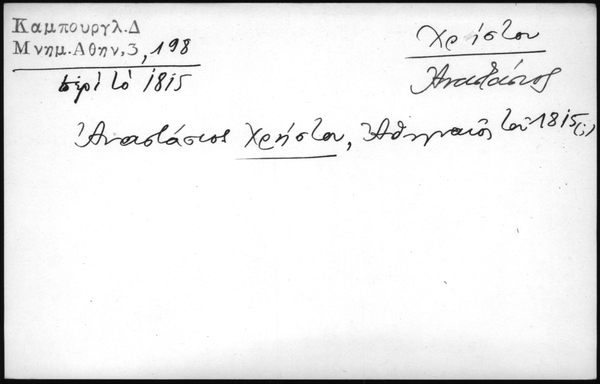 Καμπουργλ.Δ
Μνημ.Αθην,3, 198
περὶ τὸ 1815
Χρήστου
Ἀναστάσιος
Ἀναστάσιος Χρήστου, Ἀθηναῖος τοῦ 1815(;)